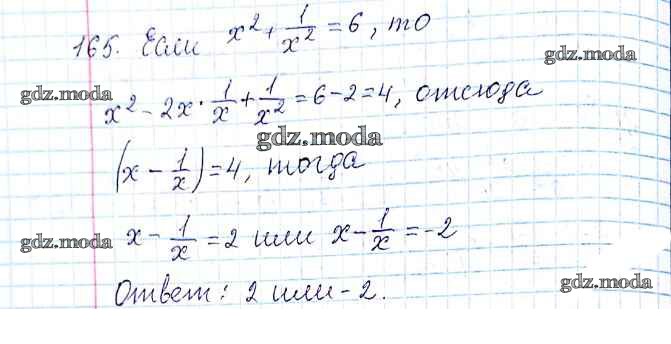 165. Если x² + 1/x² = 6, то
gdz.moda
gdz.moda
x² - 2x · 1/x + 1/x² = 6 - 2 = 4, отсюда
gdz.moda
(x - 1/x) = 4, тогда
gdz.moda
x - 1/x = 2 или x - 1/x = -2
gdz.moda
Ответ: 2 или -2.